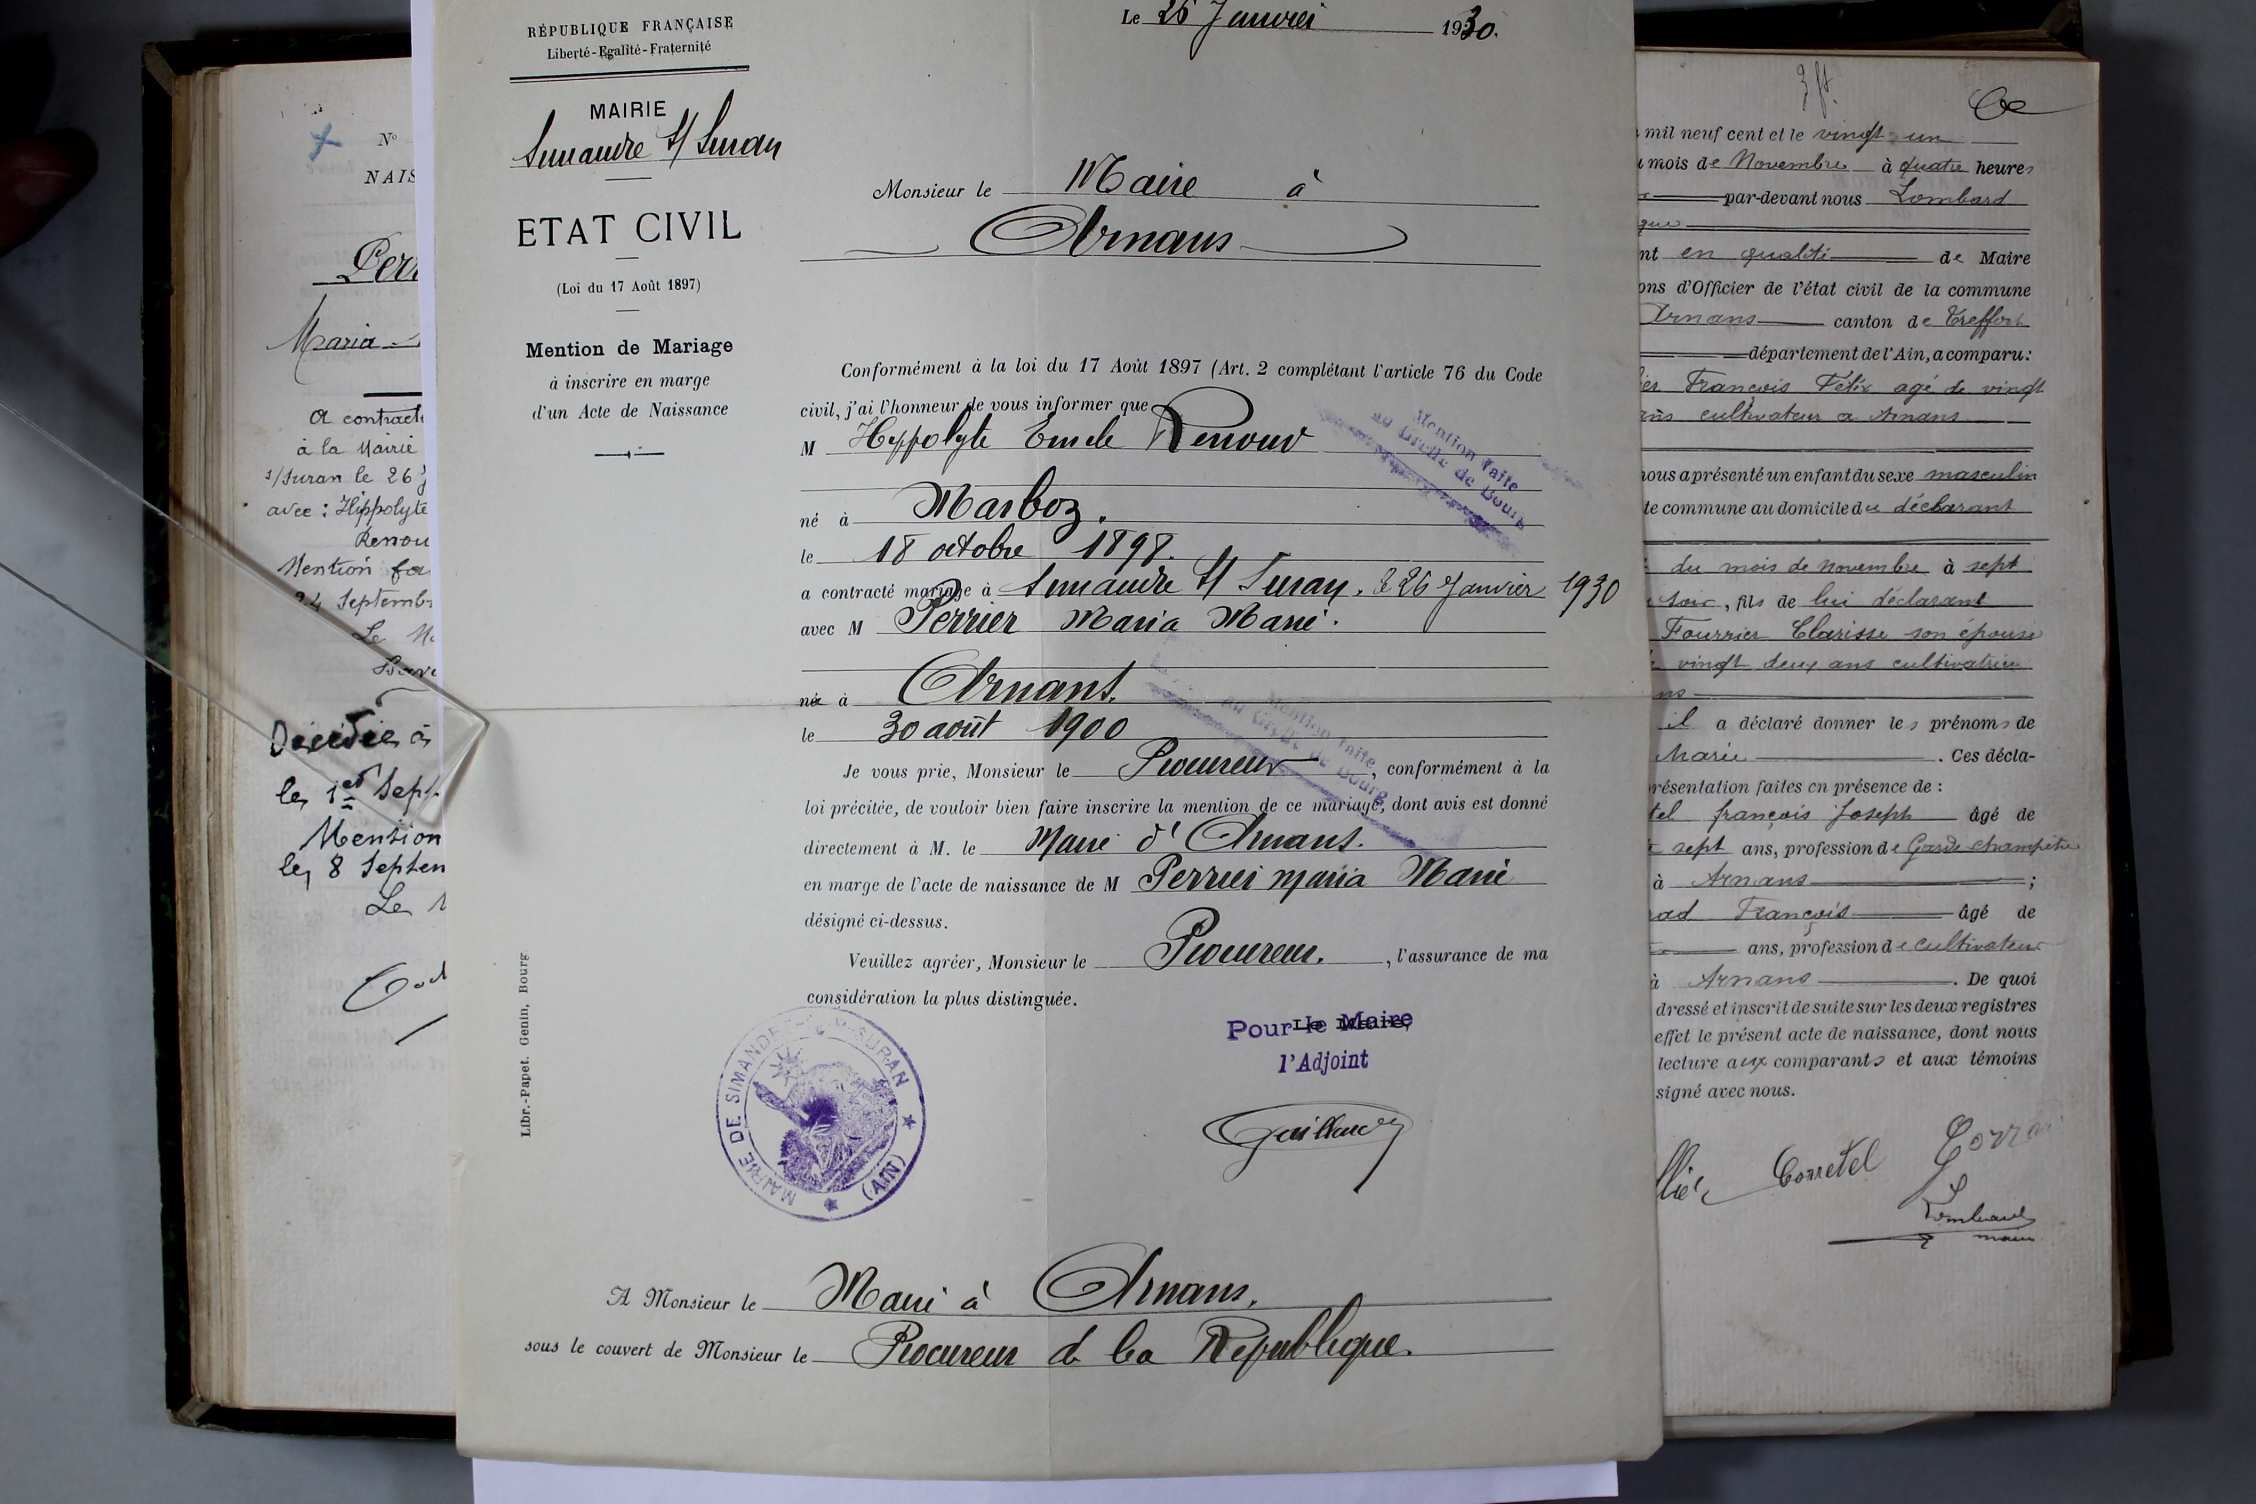 N°
NAIS
Perr
Maria
A contract
à la Mairie
s/Suran le 26 J
avec : Hippolyte
Renou
Mention fa
24 Septemb
Le M
Décédée à
le 1er Sept
Mention
le 8 Septem
Le M
RÉPUBLIQUE FRANÇAISE
Liberté-Egalité-Fraternité
MAIRIE
Simandre S/ Suran
ETAT CIVIL
(Loi du 17 Août 1897)
Mention de Mariage
à inscrire en marge
d'un Acte de Naissance
Libr.-Papet. Genin, Bourg
Le 26 Janvier 1930.
Monsieur le Maire à
Arnans
Conformément à la loi du 17 Août 1897 (Art. 2 complétant l'article 76 du Code
civil, j'ai l'honneur de vous informer que
M Hyppolyte Emile Renoud
né à Marboz.
le 18 octobre 1898.
a contracté mariage à Simandre S/ Suran. le 26 Janvier 1930
avec M Perrier Maria Marie.
née à Arnans.
le 30 août 1900
Je vous prie, Monsieur le Procureur, conformément à la
loi précitée, de vouloir bien faire inscrire la mention de ce mariage, dont avis est donné
directement à M. le Maire d'Arnans.
en marge de l'acte de naissance de M Perrier Maria Marie
désigné ci-dessus.
Veuillez agréer, Monsieur le Procureur., l'assurance de ma
considération la plus distinguée.
Mention faite
au Greffe de Bourg
Mention faite
au Greffe de Bourg
Pour le Maire
l'Adjoint
MAIRIE DE SIMANDRE-SUR-SURAN
(AIN)
A Monsieur le Maire à Arnans.
sous le couvert de Monsieur le Procureur de la République.
mil neuf cent et le vingt un
mois de Novembre à quatre heures
par-devant nous Lombard
nt en qualité de Maire
ons d'Officier de l'état civil de la commune
Arnans canton de Treffort
département de l'Ain, a comparu:
ier François Félix agé de vingt
ans cultivateur a Arnans
nous a présenté un enfant du sexe masculin
te commune au domicile du déclarant
du mois de Novembre à sept
soir, fils de lui déclarant
Fourrier Clarisse son épouse
vingt deux ans cultivatrice
ns
il a déclaré donner les prénoms de
Marie. Ces décla-
résentation faites en présence de :
tel françois Joseph âgé de
sept ans, profession de Garde champêtre
à Arnans ;
rad François âgé de
ans, profession de cultivateur
à Arnans. De quoi
dressé et inscrit de suite sur les deux registres
effet le présent acte de naissance, dont nous
lecture aux comparants et aux témoins
signé avec nous.
llier Corretel
Lombard
maire